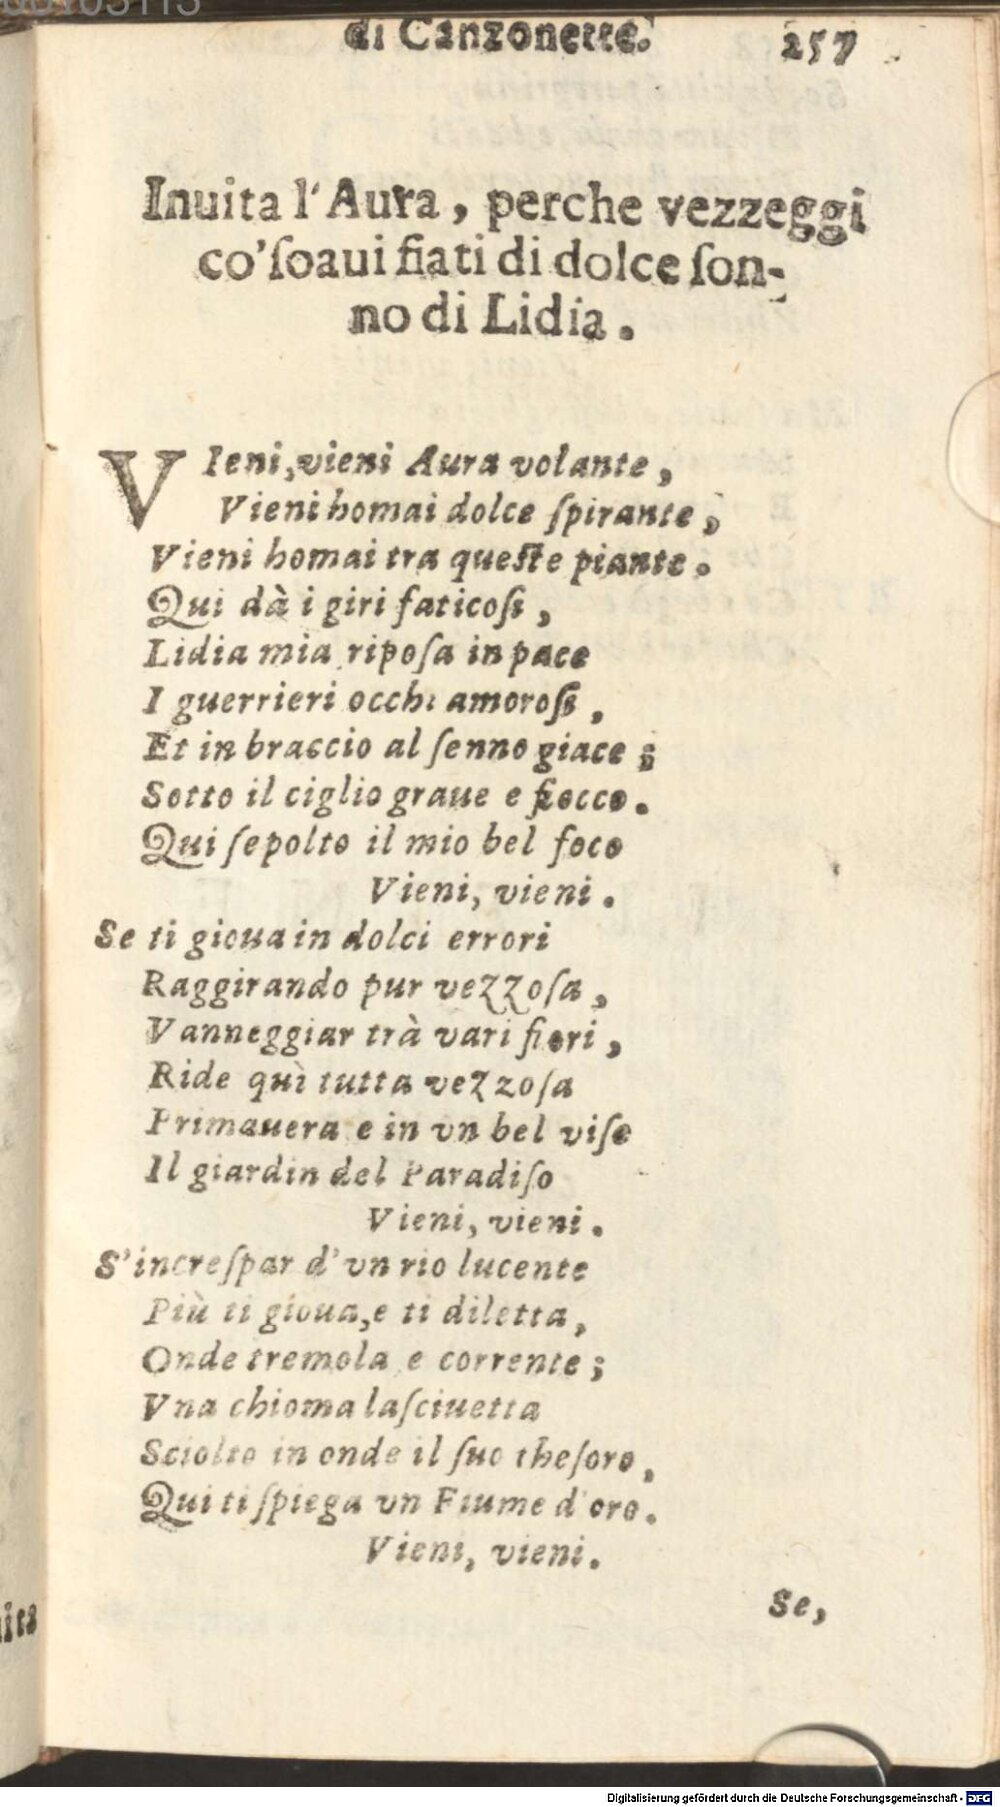 di Canzonette. 257
Inuita l'Aura, perche vezzeggi
co'ſoaui fiati di dolce ſon-
no di Lidia.
VIeni, vieni Aura volante,
Vieni homai dolce ſpirante,
Vieni homai tra queſte piante.
Qui dà i giri faticoſi,
Lidia mia ripoſa in pace
I guerrieri occhi amoroſi,
Et in braccio al ſenno giace;
Sotto il ciglio graue e fiocco.
Qui ſepolto il mio bel foco
Vieni, vieni.
Se ti gioua in dolci errori
Raggirando pur vezzoſa,
Vanneggiar trà vari fiori,
Ride quì tutta vezzoſa
Primauera e in vn bel viſo
Il giardin del Paradiſo
Vieni, vieni.
S'increſpar d'vn rio lucente
Più ti gioua, e ti diletta,
Onde tremola e corrente;
Vna chioma laſciuetta
Sciolto in onde il ſuo theſoro,
Qui ti ſpiega vn Fiume d'oro.
Vieni, vieni.
Se,
Digitalisierung gefördert durch die Deutsche Forschungsgemeinschaft - DFG